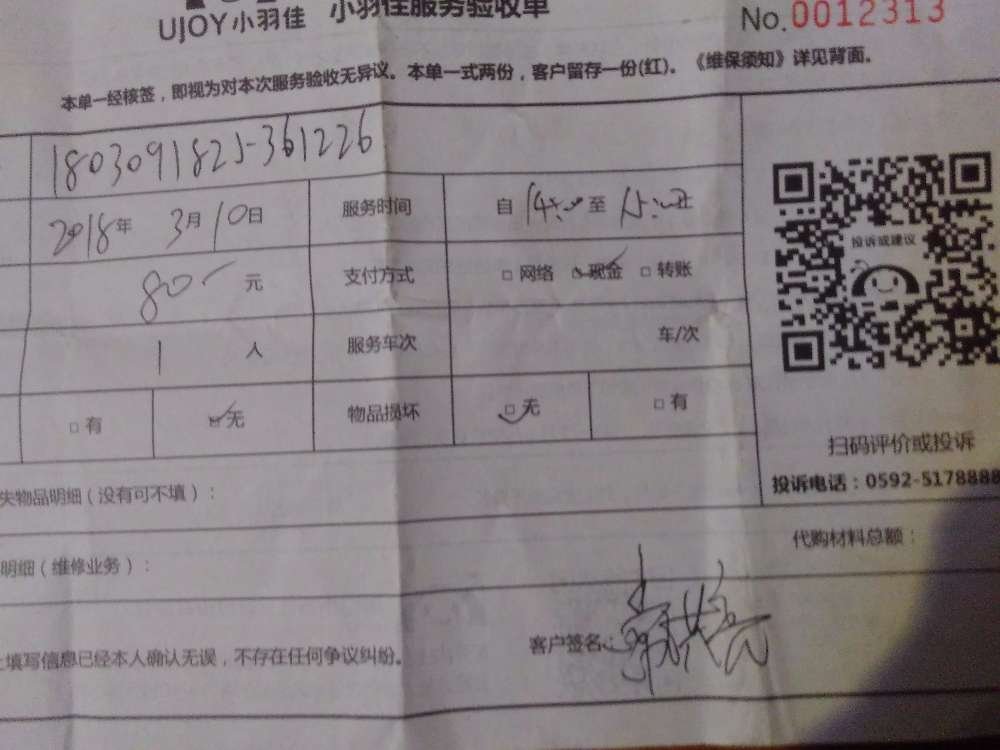 UJOY小羽佳 小羽佳服务验收单 No.0012313
本单一经核签，即视为对本次服务验收无异议。本单一式两份，客户留存一份(红)。《维保须知》详见背面。
1803091825-361226
2018年 3月10日 服务时间 自 14:00 至 15:00
投诉或建议
80 元 支付方式 □ 网络 □ 现金 □ 转账
1 人 服务车次 车/次
□ 有 □ 无 物品损坏 □ 无 □ 有
扫码评价或投诉
投诉电话：0592-5178888
失物品明细（没有可不填）：
代购材料总额：
明细（维修业务）：
客户签名：
上填写信息已经本人确认无误，不存在任何争议纠纷。